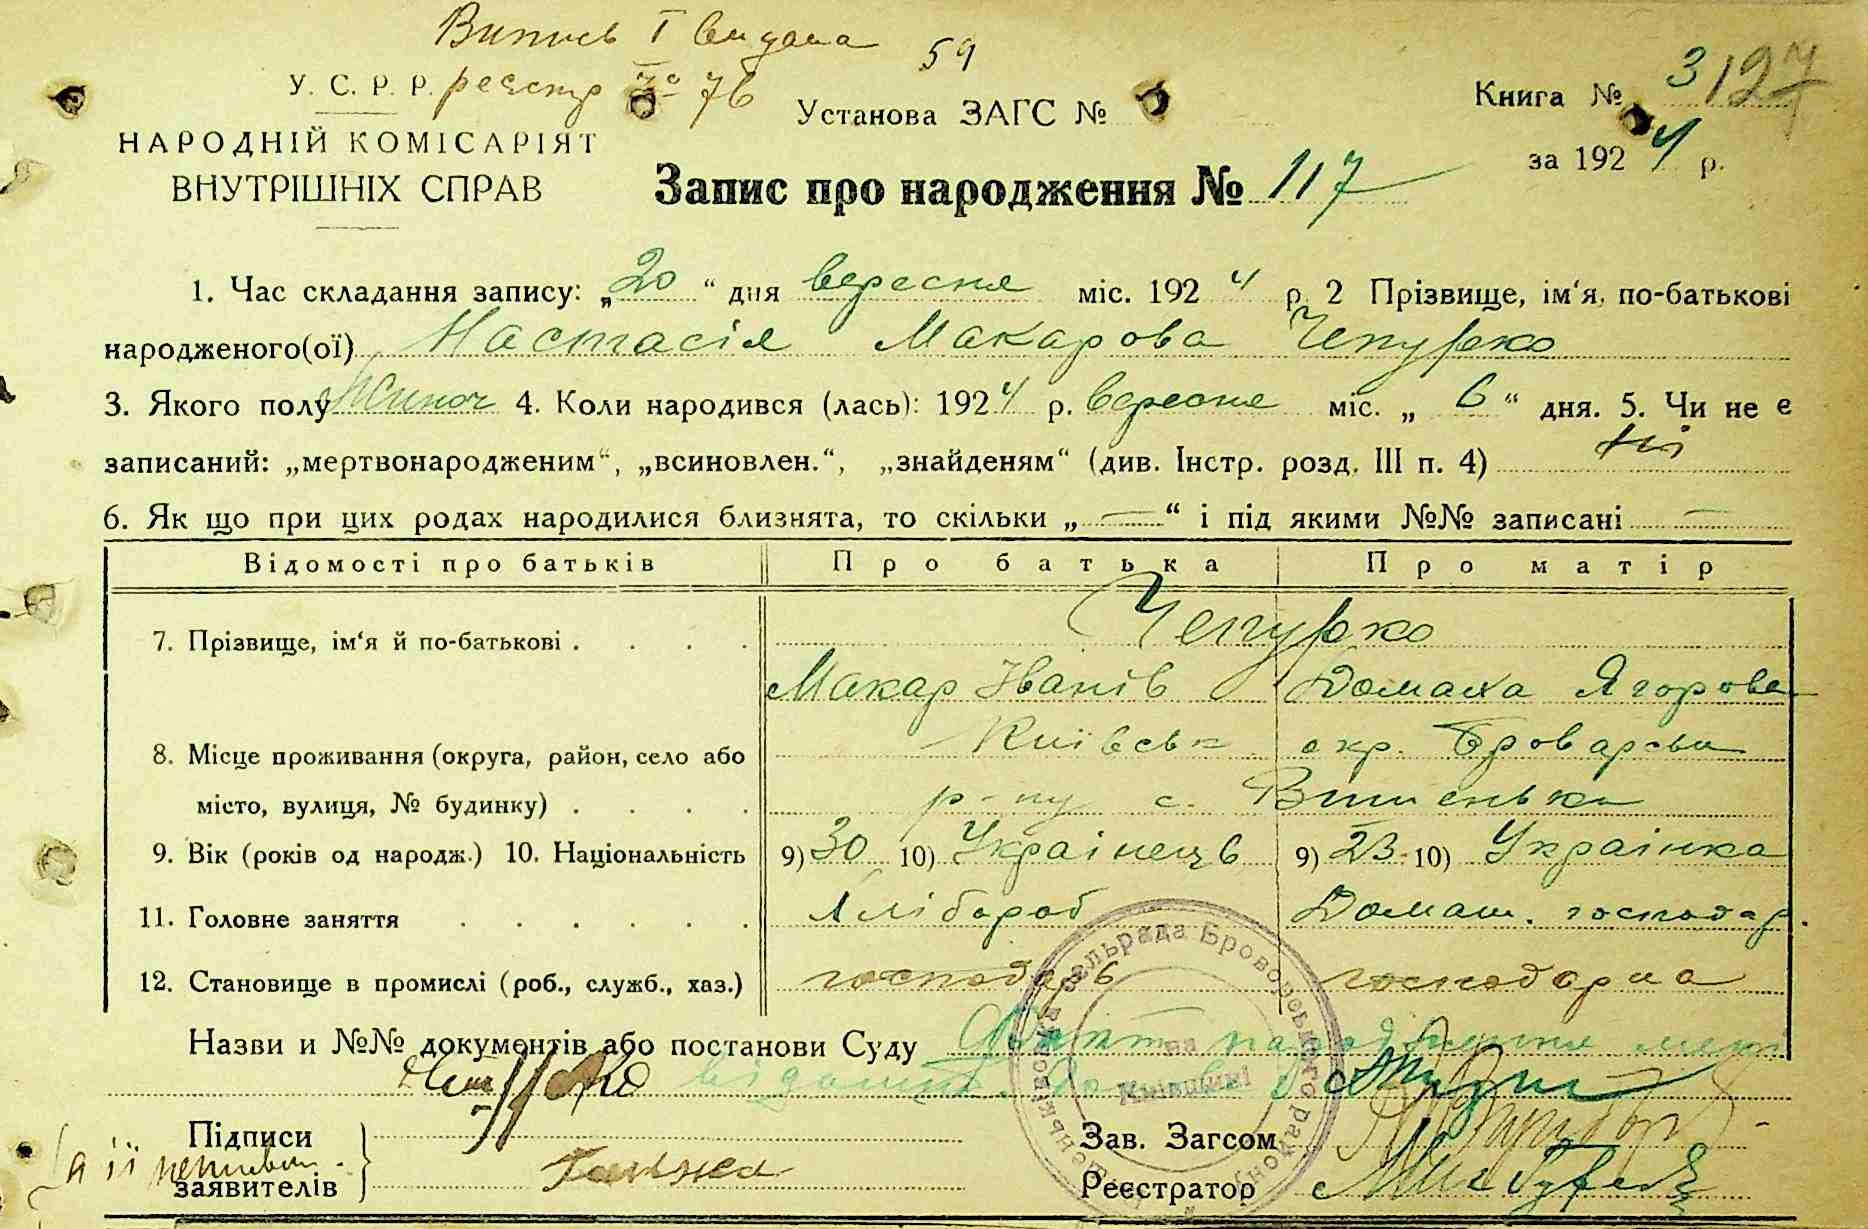 Випись І видана
59
У. С. Р. Р. реєстр № 76
Установа ЗАГС №
Книга № 3 127
НАРОДНІЙ КОМІСАРІЯТ
ВНУТРІШНІХ СПРАВ
за 1924 р.
Запис про народження № 117
1. Час складання запису: „20“ дня вересня міс. 1924 р. 2 Прізвище, ім'я, по-батькові
народженого(ої) Настасія Макарова Чепурко
3. Якого полу Жиноч 4. Коли народився (лась): 1924 р. вересня міс. „6“ дня. 5. Чи не є
записаний: „мертвонародженим“, „всиновлен.“, „знайденям“ (див. Інстр. розд. III п. 4) ні
6. Як що при цих родах народилися близнята, то скільки „—“ і під якими №№ записані —
Відомості про батьків Про батька Про матір
7. Прізвище, ім‘я й по-батькові . . . . Чепурко
Макар Іванів Домаха Ягорова
8. Місце проживання (округа, район, село або Київськ окр. Броварськ
місто, вулиця, № будинку) . . . . р-ну с. Вишеньки
9. Вік (років од народж.) 10. Національність 9) 30 10) Українець 9) 23 10) Українка
11. Головне заняття . . . . . . Хлібороб Домаш. господар.
12. Становище в промислі (роб., служб., хаз.) господарь господарка
Назви и №№ документів або постанови Суду Факт народження мені
відомий
Підписи
Зав. Загсом
а її
заявителів
Реєстратор
сельрада Броворського району
на Київщині